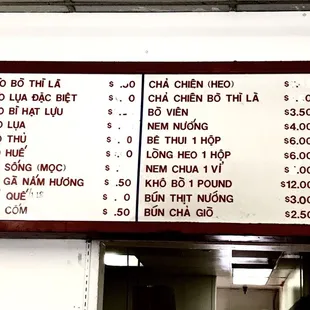 BÒ THÌ LÀ $ .50
LỤA ĐẶC BIỆT $ . 0
BÌ HẠT LỰU $
LỤA $ .
THỦ $ . 0
HUẾ $ . 0
SỐNG (MỌC) $ .
GÀ NẤM HƯƠNG $ .50
QUẾ $ . 0
CỐM $ .50
CHẢ CHIÊN (HEO) $
CHẢ CHIÊN BÒ THÌ LÀ $ . 0
BÒ VIÊN $3.50
NEM NƯỚNG $4.00
BÊ THUI 1 HỘP $6.00
LÒNG HEO 1 HỘP $6.00
NEM CHUA 1 VỈ $ .00
KHÔ BÒ 1 POUND $12.00
BÚN THỊT NƯỚNG $3.00
BÚN CHẢ GIÒ $2.50